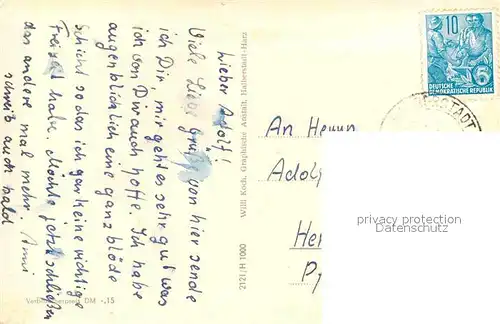 Lieber Adolf!
Viele Liebe Grüße von hier sende
ich Dir, mir geht es sehr gut was
ich von Dir auch hoffe. Ich habe
augenblicklich eine ganz blöde
Schicht so das ich gar keine richtige
Freizeit habe. Möchte jetzt schließen
das andere mal mehr
schreib auch bald
Verbraucherpreis DM -,15
2121/H 1000 Willi Koch, Graphische Anstalt, Halberstadt-Harz
10
DEUTSCHE
DEMOKRATISCHE REPUBLIK
An Herrn
Adol
He
Py
privacy protection
Datenschutz